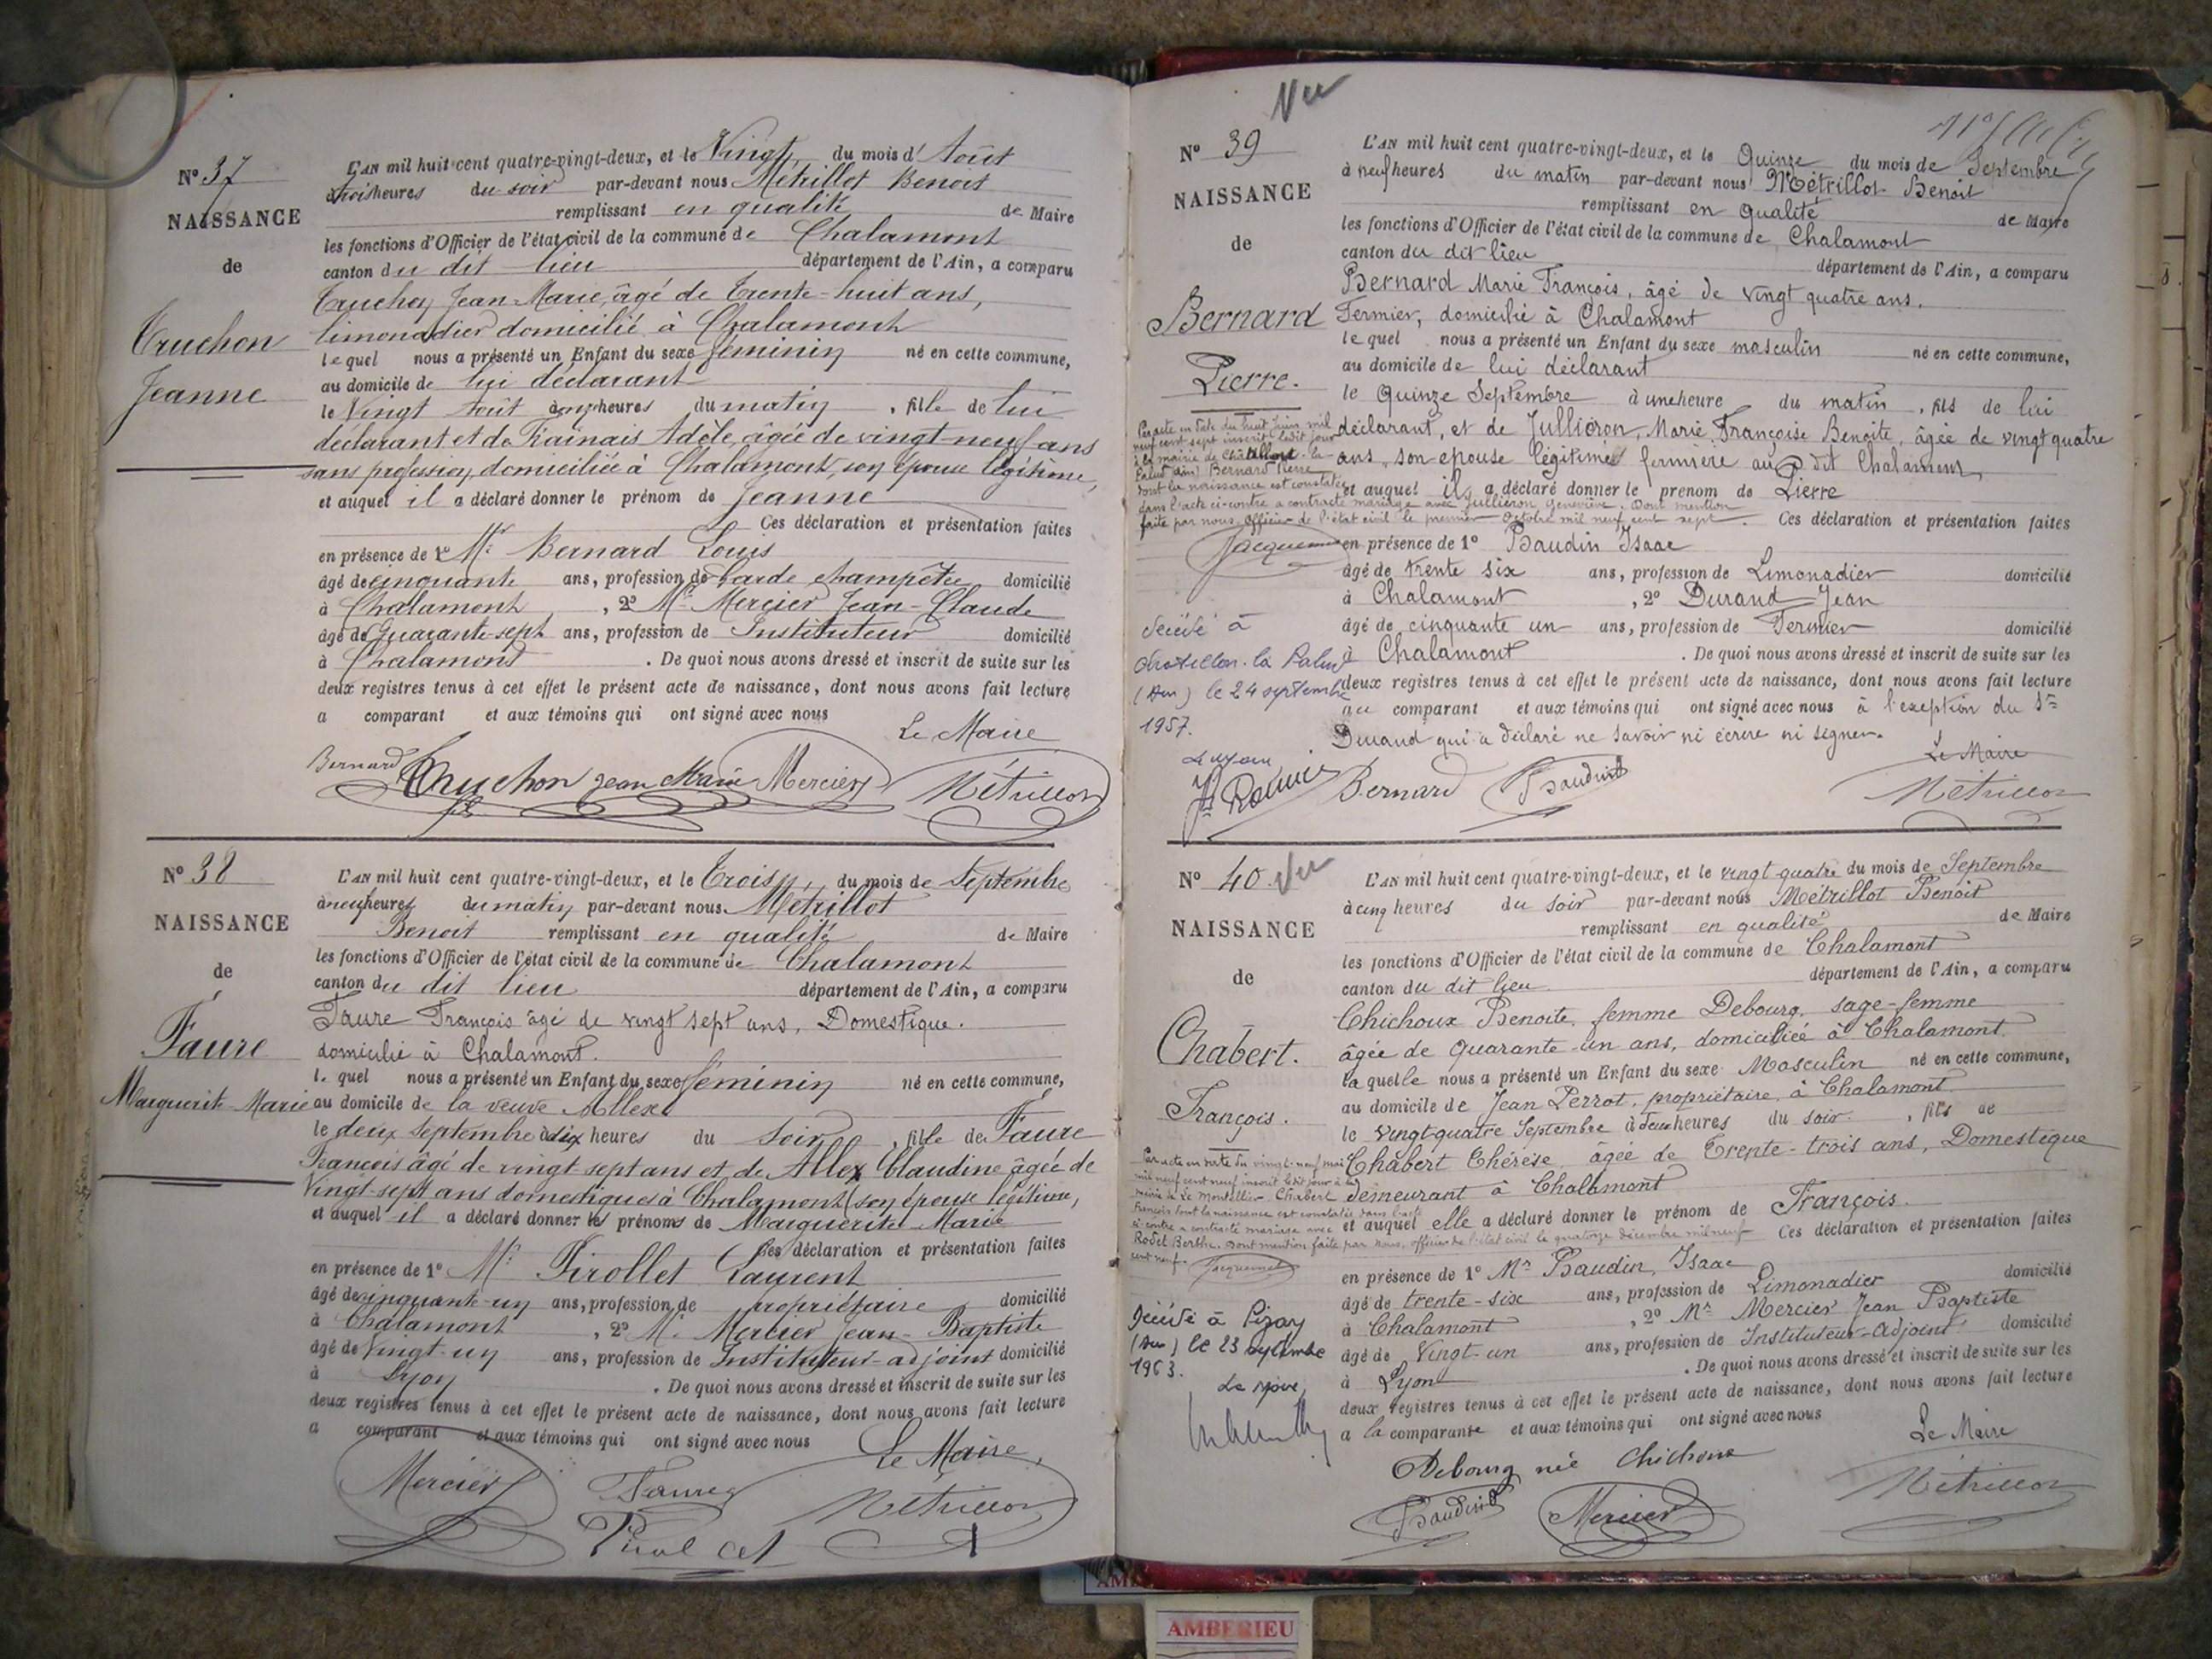 N° 37
NAISSANCE
de
Truchon
Jeanne
L'AN mil huit cent quatre-vingt-deux, et le Vingt du mois d'Août
à trois heures du soir par-devant nous Métrillot Benoit
remplissant en qualité de Maire
les fonctions d'Officier de l'état civil de la commune de Chalamont
canton du dit lieu département de l'Ain, a comparu
Truchon Jean-Marie, âgé de Trente-huit ans,
limonadier domicilié à Chalamont
lequel nous a présenté un Enfant du sexe féminin né en cette commune,
au domicile de lui déclarant
le Vingt Août à heures du matin, fille de lui
déclarant et de Adèle, âgée de vingt-neuf ans
sans profession, domiciliée à Chalamont, son épouse légitime,
et auquel il a déclaré donner le prénom de Jeanne
Ces déclaration et présentation faites
en présence de 1° Mr Bernard Louis
âgé de cinquante ans, profession de Garde champêtre domicilié
à Chalamont, 2° Mr Mercier Jean-Claude
âgé de Quarante-sept ans, profession de Instituteur domicilié
à Chalamont. De quoi nous avons dressé et inscrit de suite sur les
deux registres tenus à cet effet le présent acte de naissance, dont nous avons fait lecture
a comparant et aux témoins qui ont signé avec nous
Le Maire
Bernard Truchon Jean Marie Mercier Métrillot
N° 38
NAISSANCE
de
Faure
Marguerite Marie
L'AN mil huit cent quatre-vingt-deux, et le Trois du mois de Septembre
à neuf heures du matin par-devant nous Métrillot
Benoit remplissant en qualité de Maire
les fonctions d'Officier de l'état civil de la commune de Chalamont
canton du dit lieu département de l'Ain, a comparu
Faure François âgé de vingt sept ans, Domestique.
domicilié à Chalamont.
lequel nous a présenté un Enfant du sexe féminin né en cette commune,
au domicile de la veuve Allex
le deux Septembre à dix heures du soir, fille de Faure
François âgé de vingt sept ans et de Allex Claudine âgée de
Vingt-sept ans domestiques à Chalamont, son épouse légitime,
et auquel il a déclaré donner les prénoms de Marguerite Marie
Ces déclaration et présentation faites
en présence de 1° Mr Pirollet Laurent
âgé de cinquante-un ans, profession de propriétaire domicilié
à Chalamont, 2° Mr Mercier Jean-Baptiste
âgé de Vingt-un ans, profession de Instituteur-adjoint domicilié
à Lyon. De quoi nous avons dressé et inscrit de suite sur les
deux registres tenus à cet effet le présent acte de naissance, dont nous avons fait lecture
a comparant et aux témoins qui ont signé avec nous
Le Maire
Mercier Faure Métrillot
N° 39
Vu
NAISSANCE
de
Bernard
Pierre.
L'AN mil huit cent quatre-vingt-deux, et le Quinze du mois de Septembre
à neuf heures du matin par-devant nous Métrillot Benoit
remplissant en qualité de Maire
les fonctions d'Officier de l'état civil de la commune de Chalamont
canton du dit lieu département de l'Ain, a comparu
Bernard Marie François, âgé de vingt quatre ans.
Fermier, domicilié à Chalamont
lequel nous a présenté un Enfant du sexe masculin né en cette commune,
au domicile de lui déclarant
le Quinze Septembre à une heure du matin, fils de lui
déclarant, et de Jullièron, Marie Françoise Benoite, âgée de vingt quatre
ans, son épouse légitime fermière au dit Chalamont,
et auquel il a déclaré donner le prénom de Pierre
Ces déclaration et présentation faites
en présence de 1° Baudin Isaac
âgé de trente six ans, profession de Limonadier domicilié
à Chalamont, 2° Durand Jean
âgé de cinquante un ans, profession de Fermier domicilié
à Chalamont. De quoi nous avons dressé et inscrit de suite sur les
deux registres tenus à cet effet le présent acte de naissance, dont nous avons fait lecture
au comparant et aux témoins qui ont signé avec nous à l'exeption du Sr
Durand qui a déclaré ne savoir ni écrire ni signer.
Le Maire
Bernard Baudin Métrillot
Par acte en date du huit juin mil
neuf cent sept inscrit ledit jour
à la mairie de Châtillon-la-
Palud (Ain) Bernard Pierre
dont la naissance est constatée
dans l'acte ci-contre a contracté mariage avec Jullièron Geneviève. Dont mention
faite par nous officier de l'état civil le premier Octobre mil neuf cent sept.
décédé à
Chatillon-la Palud
(Ain) le 24 septembre
1957.
N° 40
Vu
NAISSANCE
de
Chabert.
François.
L'AN mil huit cent quatre-vingt-deux, et le vingt quatre du mois de Septembre
à cinq heures du soir par-devant nous Métrillot Benoit
remplissant en qualité de Maire
les fonctions d'Officier de l'état civil de la commune de Chalamont
canton du dit lieu département de l'Ain, a comparu
Chichoux Benoite, femme Debourg, sage-femme
âgée de quarante-un ans, domiciliée à Chalamont
laquelle nous a présenté un Enfant du sexe Masculin né en cette commune,
au domicile de Jean Perrot, propriétaire, à Chalamont
le Vingt-quatre Septembre à deux heures du soir, fils de
Chabert Thérèse, âgée de Trente-trois ans, Domestique
demeurant à Chalamont
et auquel elle a déclaré donner le prénom de François.
Ces déclaration et présentation faites
en présence de 1° Mr Baudin, Isaac
âgé de trente-six ans, profession de Limonadier domicilié
à Chalamont, 2° Mr Mercier Jean Baptiste
âgé de Vingt-un ans, profession de Instituteur-Adjoint domicilié
à Lyon. De quoi nous avons dressé et inscrit de suite sur les
deux registres tenus à cet effet le présent acte de naissance, dont nous avons fait lecture
a la comparante et aux témoins qui ont signé avec nous
Le Maire
Debourg née Chichoux
Baudin Mercier Métrillot
Par acte en date du vingt-neuf mai
mil neuf cent neuf inscrit ledit jour à la
mairie de Le Montellier Chabert
François dont la naissance est constatée dans l'acte
ci-contre a contracté mariage avec
Rodet Berthe. Dont mention faite par nous, officier de l'état civil le quatorze décembre mil neuf
cent neuf.
Décédé à Pizay
(Ain) le 23 septembre
1963.
Le Maire,
AMBERIEU